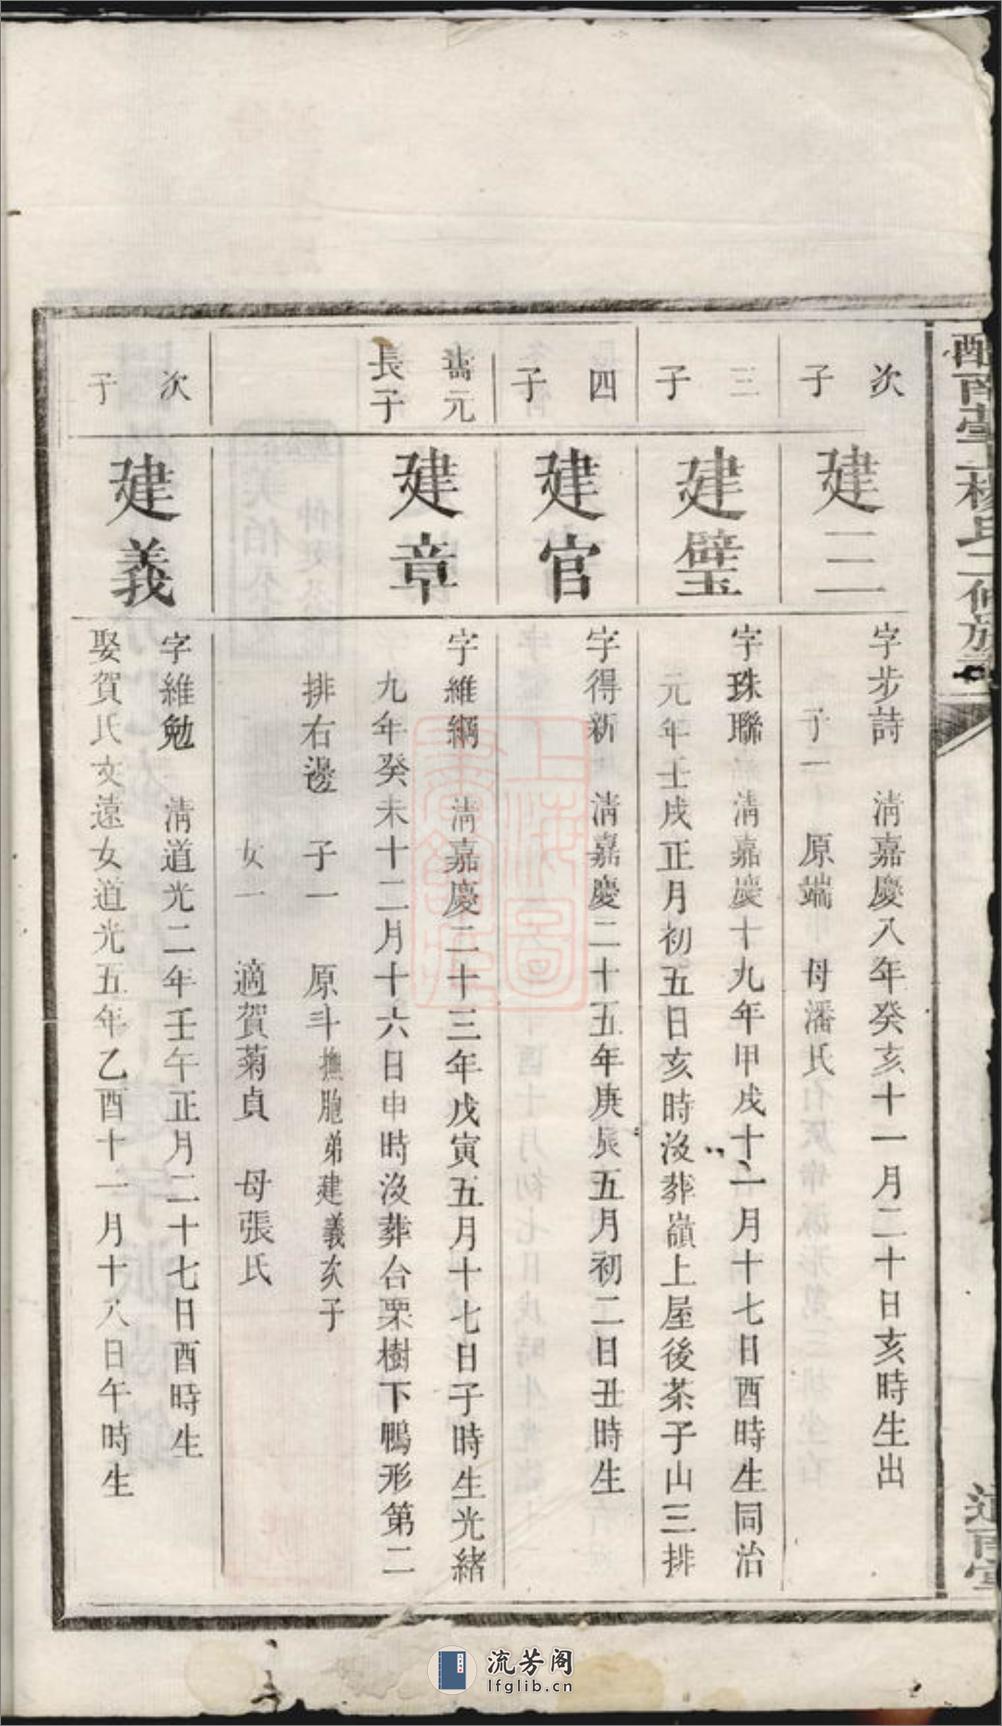 次子
建三
字步詩 清嘉慶八年癸亥十一月二十日亥時生出
子一 原端 母潘氏
三子
建璧
字珠聯 清嘉慶十九年甲戌十二月十七日酉時生同治
元年壬戌正月初五日亥時沒葬嶺上屋後茶子山三排
四子
建官
字得新 清嘉慶二十五年庚辰五月初二日丑時生
元長子
建章
字維綱 清嘉慶二十三年戊寅五月十七日子時生光緒
九年癸未十二月十六日申時沒葬台栗樹下鴨形第二
排右邊 子一 原斗撫胞弟建義次子
女一 適賀菊貞 母張氏
次子
建義
字維勉 清道光二年壬午正月二十七日酉時生
娶賀氏文遠女道光五年乙酉十一月十八日午時生
上海圖書館藏
流芳阁
lfglib.cn